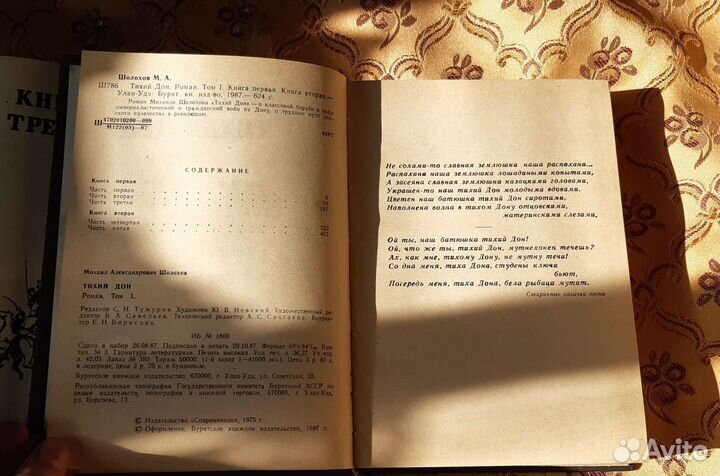 КНИ
ТРЕ
Шолохов М. А.
Ш786 Тихий Дон. Роман. Том I. Книга первая. Книга вторая.—
Улан-Удэ: Бурят. кн. изд-во, 1987.— 624 с.
Роман Михаила Шолохова «Тихий Дон» — о классовой борьбе в годы
империалистической и гражданской войн на Дону, о трудном пути дон-
ского казачества в революцию.
Ш 4702010200—098
М122(03)—87
84Р7
СОДЕРЖАНИЕ
Книга первая
Часть первая 8
Часть вторая 93
Часть третья 187
Книга вторая
Часть четвертая 322
Часть пятая 467
Михаил Александрович Шолохов
ТИХИЙ ДОН
Роман. Том I.
Редактор С. Н. Тумуров. Художник Ю. В. Невский. Художественный ре-
дактор В. А. Савельев. Технический редактор А. С. Сангаева. Коррек-
тор Е. И. Борисова.
ИБ № 1800
Сдано в набор 26.08.87. Подписано в печать 29.10.87. Формат 60×84¹/₁₆. Бум.
тип. № 3. Гарнитура литературная. Печать высокая. Усл. печ. л. 36,27. Уч.-изд.
л. 42,03. Заказ № 385. Тираж 50000. (1-й завод 1—41600 экз.) Цена 3 р. 60 к.
в ледерине, цена 3 р. 70 к. в бумвиниле.
Бурятское книжное издательство, 670000, г. Улан-Удэ, ул. Советская, 25
Республиканская типография Государственного комитета Бурятской АССР по
делам издательств, полиграфии и книжной торговли, 670000, г. Улан-Удэ,
ул. Борсоева, 13.
© Издательство «Современник», 1975 г.
© Оформление. Бурятское книжное издательство, 1987 г.
Не сохами-то славная землюшка наша распахана...
Распахана наша землюшка лошадиными копытами,
А засеяна славная землюшка казацкими головами,
Украшен-то наш тихий Дон молодыми вдовами,
Цветен наш батюшка тихий Дон сиротами,
Наполнена волна в тихом Дону отцовскими,
материнскими слезами.
Ой ты, наш батюшка тихий Дон!
Ой, что же ты, тихий Дон, мутнехонек течешь?
Ах, как мне, тихому Дону, не мутну течи!
Со дна меня, тиха Дона, студены ключи
бьют,
Посередь меня, тиха Дона, бела рыбица мутит.
Старинные казачьи песни
Avito